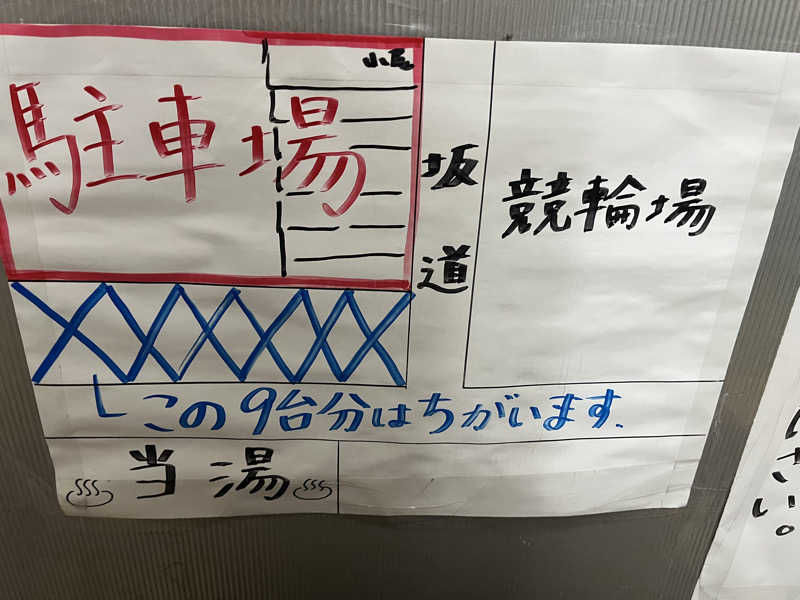 小屋
駐車場
坂道
競輪場
この9台分はちがいます.
当湯
さい。